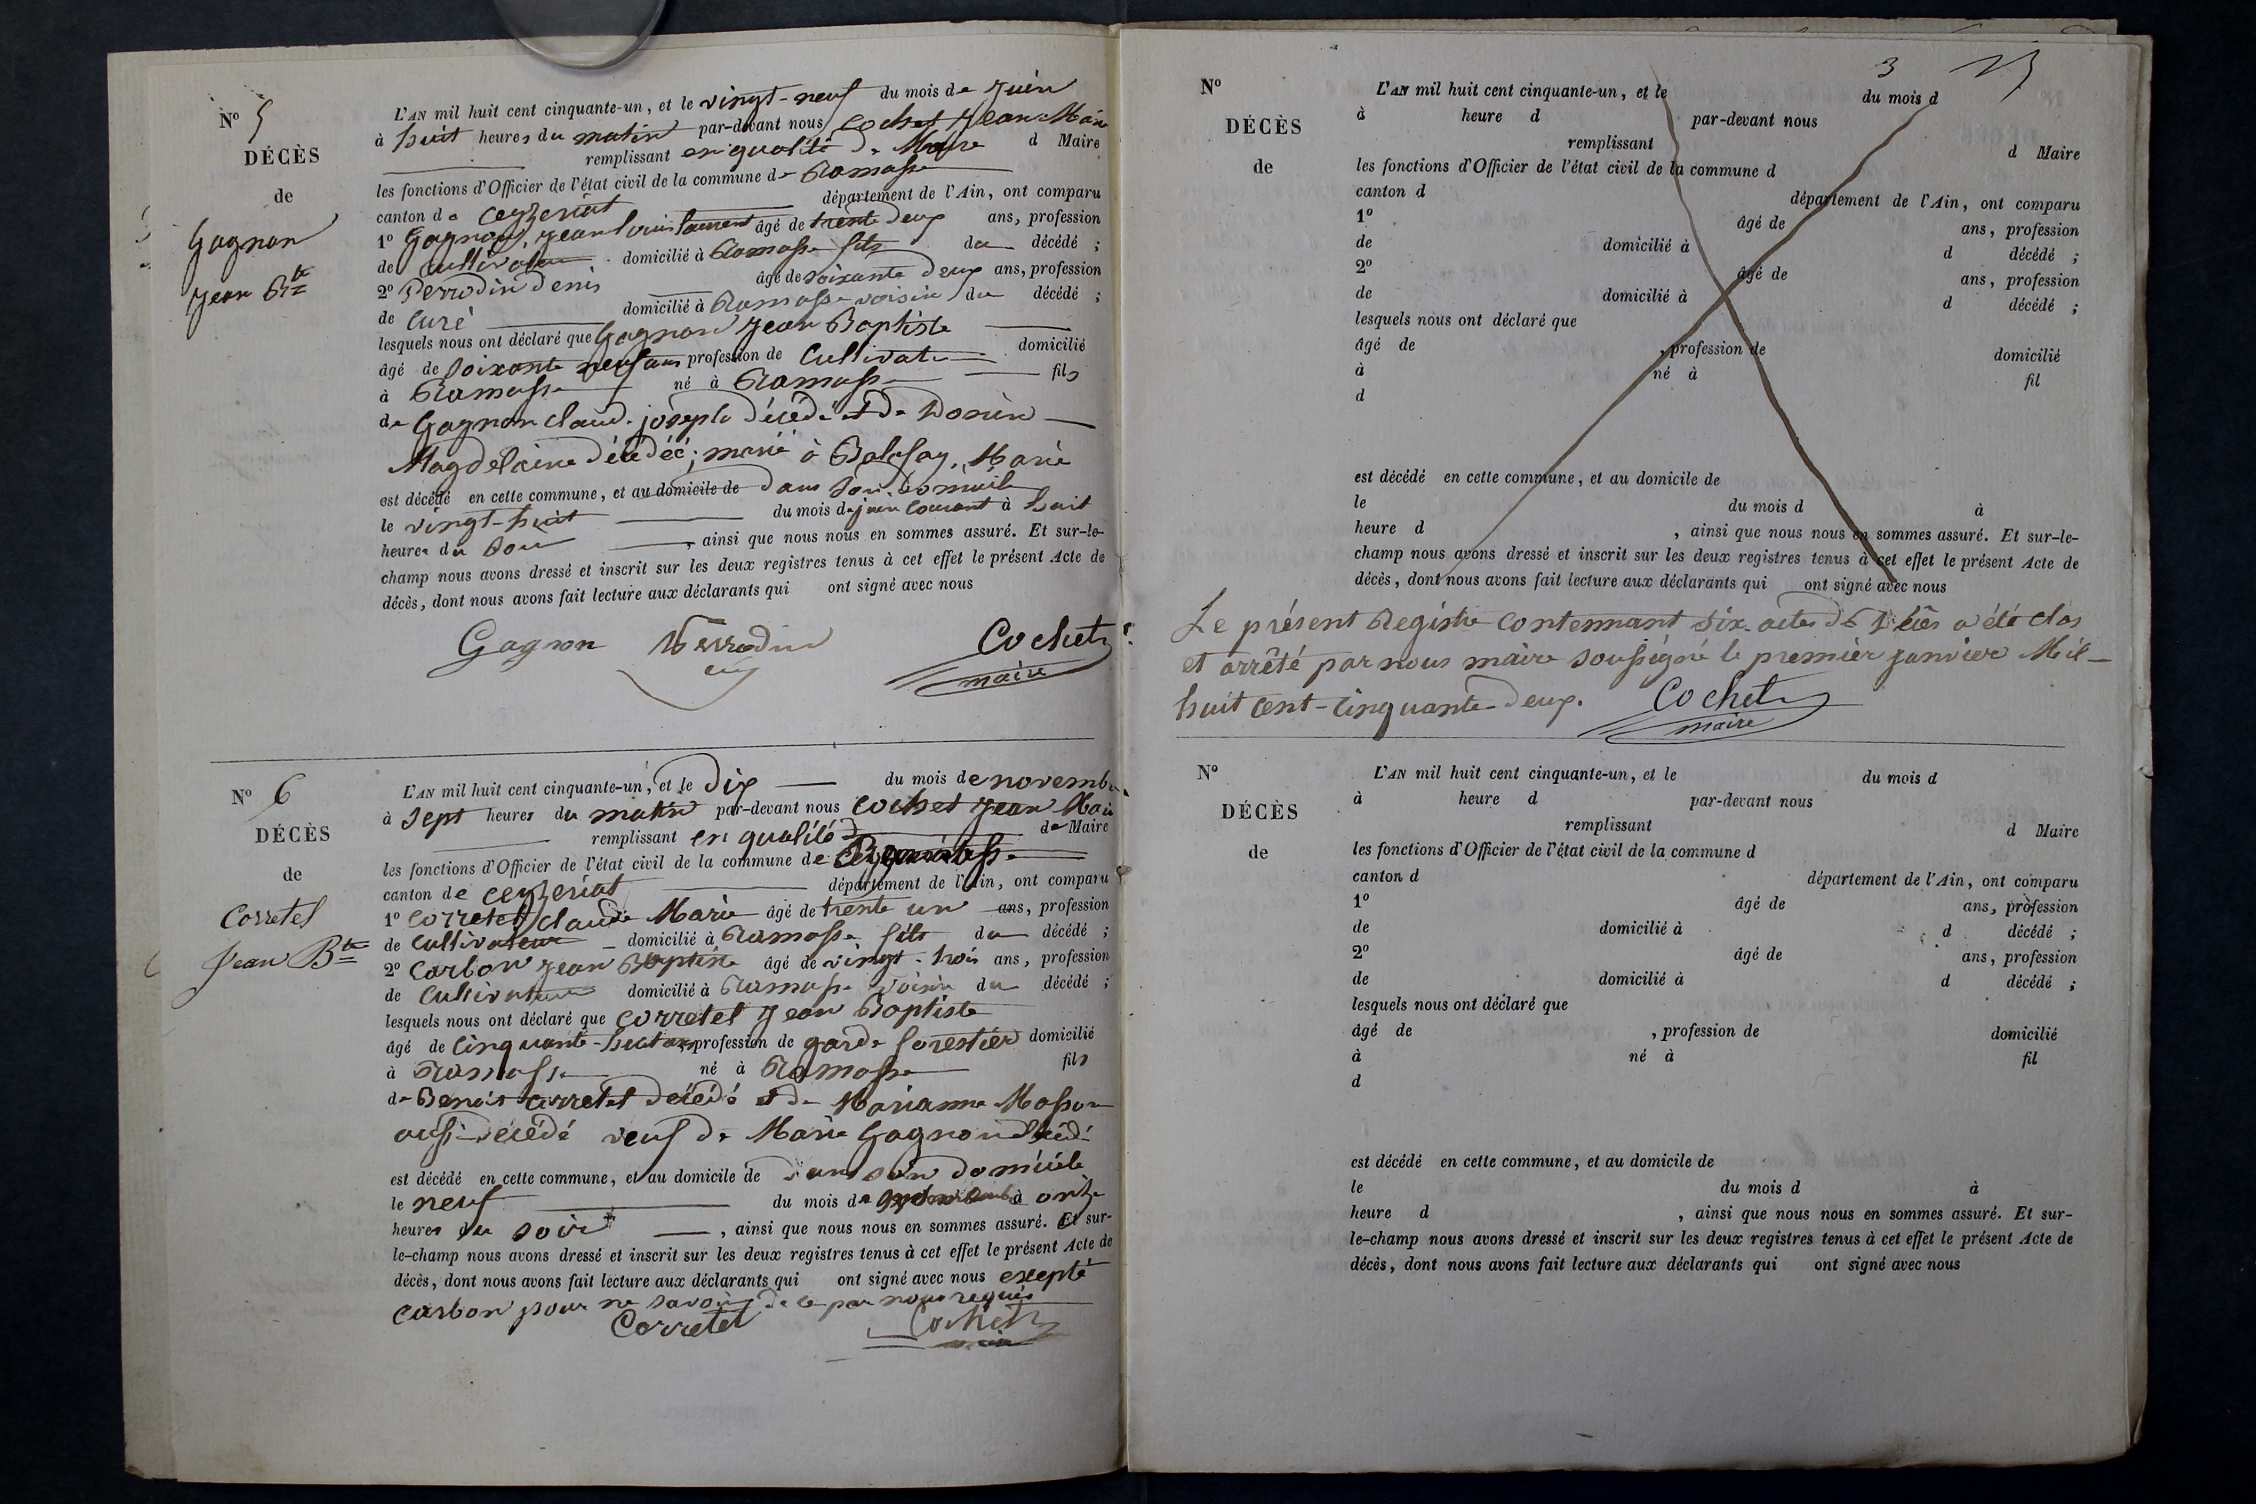 N° 5
DÉCÈS
de
Gagnon
Jean Bte
L'AN mil huit cent cinquante-un, et le vingt-neuf du mois de Juin
à huit heures du matin par-devant nous Cochet Jean Marie
remplissant en qualité de Maire d Maire
les fonctions d'Officier de l'état civil de la commune de Ramasse
canton de Ceyzeriat département de l'Ain, ont comparu
1° Gagnon, Jean Louis Laurent âgé de trente deux ans, profession
de Cultivateur domicilié à Ramasse fils du décédé ;
2° Perrodin Denis âgé de soixante deux ans, profession
de Curé domicilié à Ramasse voisin du décédé ;
lesquels nous ont déclaré que Gagnon Jean Baptiste
âgé de soixante neuf ans profession de Cultivateur domicilié
à Ramasse né à Ramasse fils
de Gagnon Claude joseph décédé et de
Magdelaine décédée ; marié à Marie
est décédé en cette commune, et au domicile de dans son domicile
le vingt-huit du mois de juin courant à huit
heures du Soir, ainsi que nous nous en sommes assuré. Et sur-le-
champ nous avons dressé et inscrit sur les deux registres tenus à cet effet le présent Acte de
décès, dont nous avons fait lecture aux déclarants qui ont signé avec nous
Gagnon Perrodin Cochet
curé maire
N° 6
DÉCÈS
de
Corretel
Jean Bte
L'AN mil huit cent cinquante-un, et le dix du mois de novembre
à sept heures du matin par-devant nous Cochet Jean Marie
remplissant en qualité de Maire
les fonctions d'Officier de l'état civil de la commune de Ramasse
canton de Ceyzeriat département de l'Ain, ont comparu
1° Corretel Claude Marie âgé de trente un ans, profession
de Cultivateur domicilié à Ramasse fils du décédé ;
2° Carbon Jean Baptiste âgé de vingt-trois ans, profession
de Cultivateur domicilié à Ramasse voisin du décédé ;
lesquels nous ont déclaré que Corretel Jean Baptiste
âgé de Cinquante-huit ans, profession de garde forestier domicilié
à Ramasse né à Ramasse fils
de Benoit Corretel décédé et de Marianne Masson
aussi décédé veuf de Marie Gagnon décédé
est décédé en cette commune, et au domicile de dans son domicile
le neuf du mois de novembre à onze
heures du soir, ainsi que nous nous en sommes assuré. Et sur-
le-champ nous avons dressé et inscrit sur les deux registres tenus à cet effet le présent Acte de
décès, dont nous avons fait lecture aux déclarants qui ont signé avec nous excepté
Carbon pour ne savoir de ce par nous requis
Corretel Cochet
maire
3
N°
DÉCÈS
de
L'AN mil huit cent cinquante-un, et le du mois d
à heure d par-devant nous
remplissant d Maire
les fonctions d'Officier de l'état civil de la commune d
canton d département de l'Ain, ont comparu
1° âgé de ans, profession
de domicilié à d décédé ;
2° âgé de ans, profession
de domicilié à d décédé ;
lesquels nous ont déclaré que
âgé de , profession de domicilié
à né à fil
d
est décédé en cette commune, et au domicile de
le du mois d à
heure d , ainsi que nous nous en sommes assuré. Et sur-le-
champ nous avons dressé et inscrit sur les deux registres tenus à cet effet le présent Acte de
décès, dont nous avons fait lecture aux déclarants qui ont signé avec nous
Le présent Registre contennant six actes de Décès a été clos
et arrêté par nous maire soussigné le premier janvier Mil-
huit cent-cinquante-deux. Cochet
maire
N°
DÉCÈS
de
L'AN mil huit cent cinquante-un, et le du mois d
à heure d par-devant nous
remplissant d Maire
les fonctions d'Officier de l'état civil de la commune d
canton d département de l'Ain, ont comparu
1° âgé de ans, profession
de domicilié à d décédé ;
2° âgé de ans, profession
de domicilié à d décédé ;
lesquels nous ont déclaré que
âgé de , profession de domicilié
à né à fil
d
est décédé en cette commune, et au domicile de
le du mois d à
heure d , ainsi que nous nous en sommes assuré. Et sur-
le-champ nous avons dressé et inscrit sur les deux registres tenus à cet effet le présent Acte de
décès, dont nous avons fait lecture aux déclarants qui ont signé avec nous